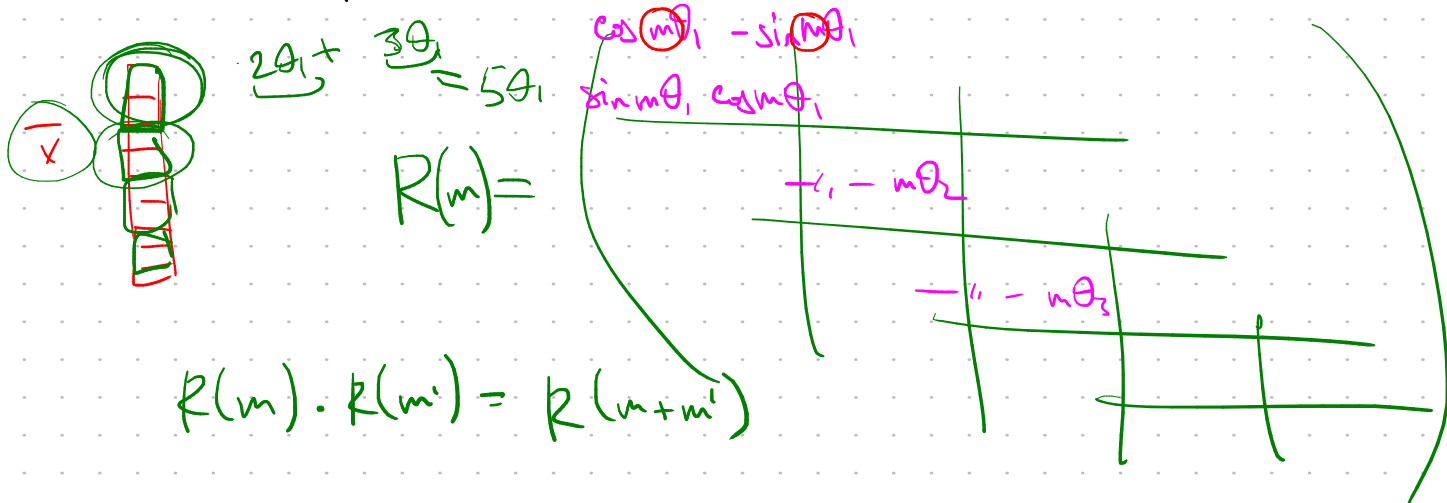 2θ₁ + 3θ₁ = 5θ₁
x̄
R(m) =
cos mθ₁ -sin mθ₁
sin mθ₁ cos mθ₁
—〃— mθ₂
—〃— mθ₃
R(m) · R(m') = R(m+m')